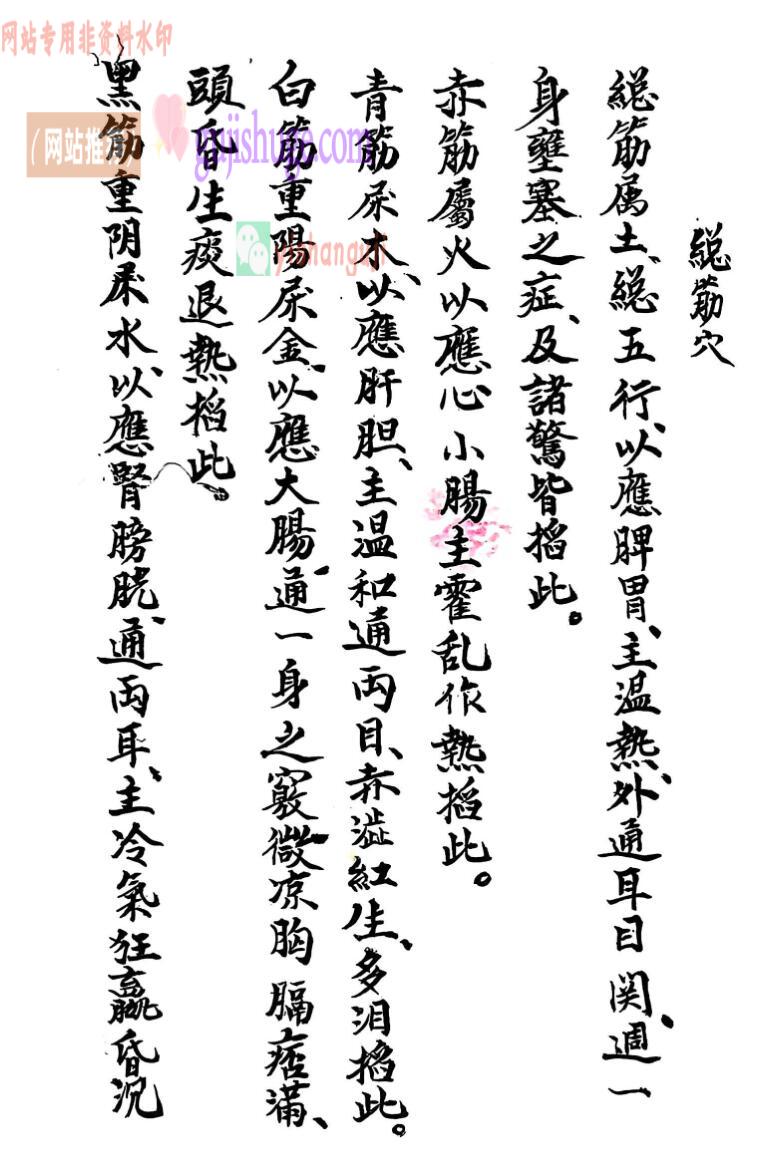 緫筋穴
緫筋属土、緫五行、以應脾胃、主温熱、外通耳目関、週一
身壅塞之症、及諸驚皆掐此。
赤筋屬火以應心小腸主霍乱作熱掐此。
青筋尿木、以應肝胆、主温和通両目、赤澁紅生、多泪掐此。
白筋重陽尿金、以應大腸、通一身之竅微凉胸膈痞滿、
頭昏生痰退熱掐此。
黑筋重阴尿水、以應腎膀胱、通両耳、主冷氣狂羸昏沉
网站专用非资料水印
(网站推荐
gujishuge.com
yishanguji